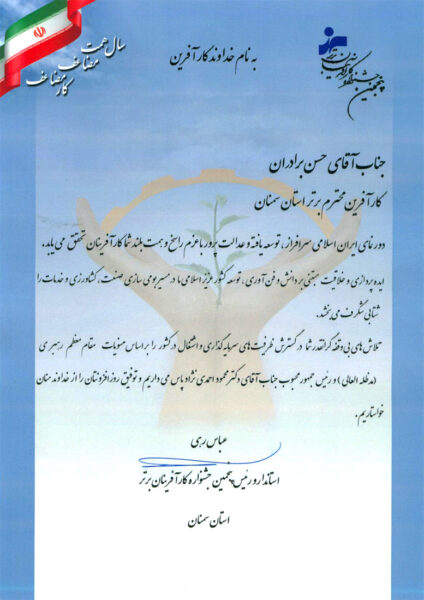 سال همت
مضاعف
کار مضاعف
پنجمین جشنواره کارآفرینان برتر
به نام خداوند کارآفرین
جناب آقای حسن برادران
کارآفرین محترم برتر استان سمنان
دورنمای ایران اسلامی سرافراز، توسعه یافته و عدالت پرور با عزم راسخ و همت بلند شما کارآفرینان تحقق می یابد.
ایده پردازی و خلاقیت مبتنی بر دانش و فن آوری، توسعه کشور عزیز اسلامی ما در مسیر بومی سازی صنعت، کشاورزی و خدمات را
شتابی شگرف می بخشد.
تلاش های بی وقفه گرانقدر شما در گسترش ظرفیت های سرمایه گذاری و اشتغال در کشور را بر اساس منویات مقام معظم رهبری
(مدظله العالی) و رئیس جمهور محبوب جناب آقای دکتر محمود احمدی نژاد پاس می داریم و توفیق روزافزونتان را از خداوند منان
خواستاریم.
عباس رهی
استاندار و رئیس پنجمین جشنواره کارآفرینان برتر
استان سمنان